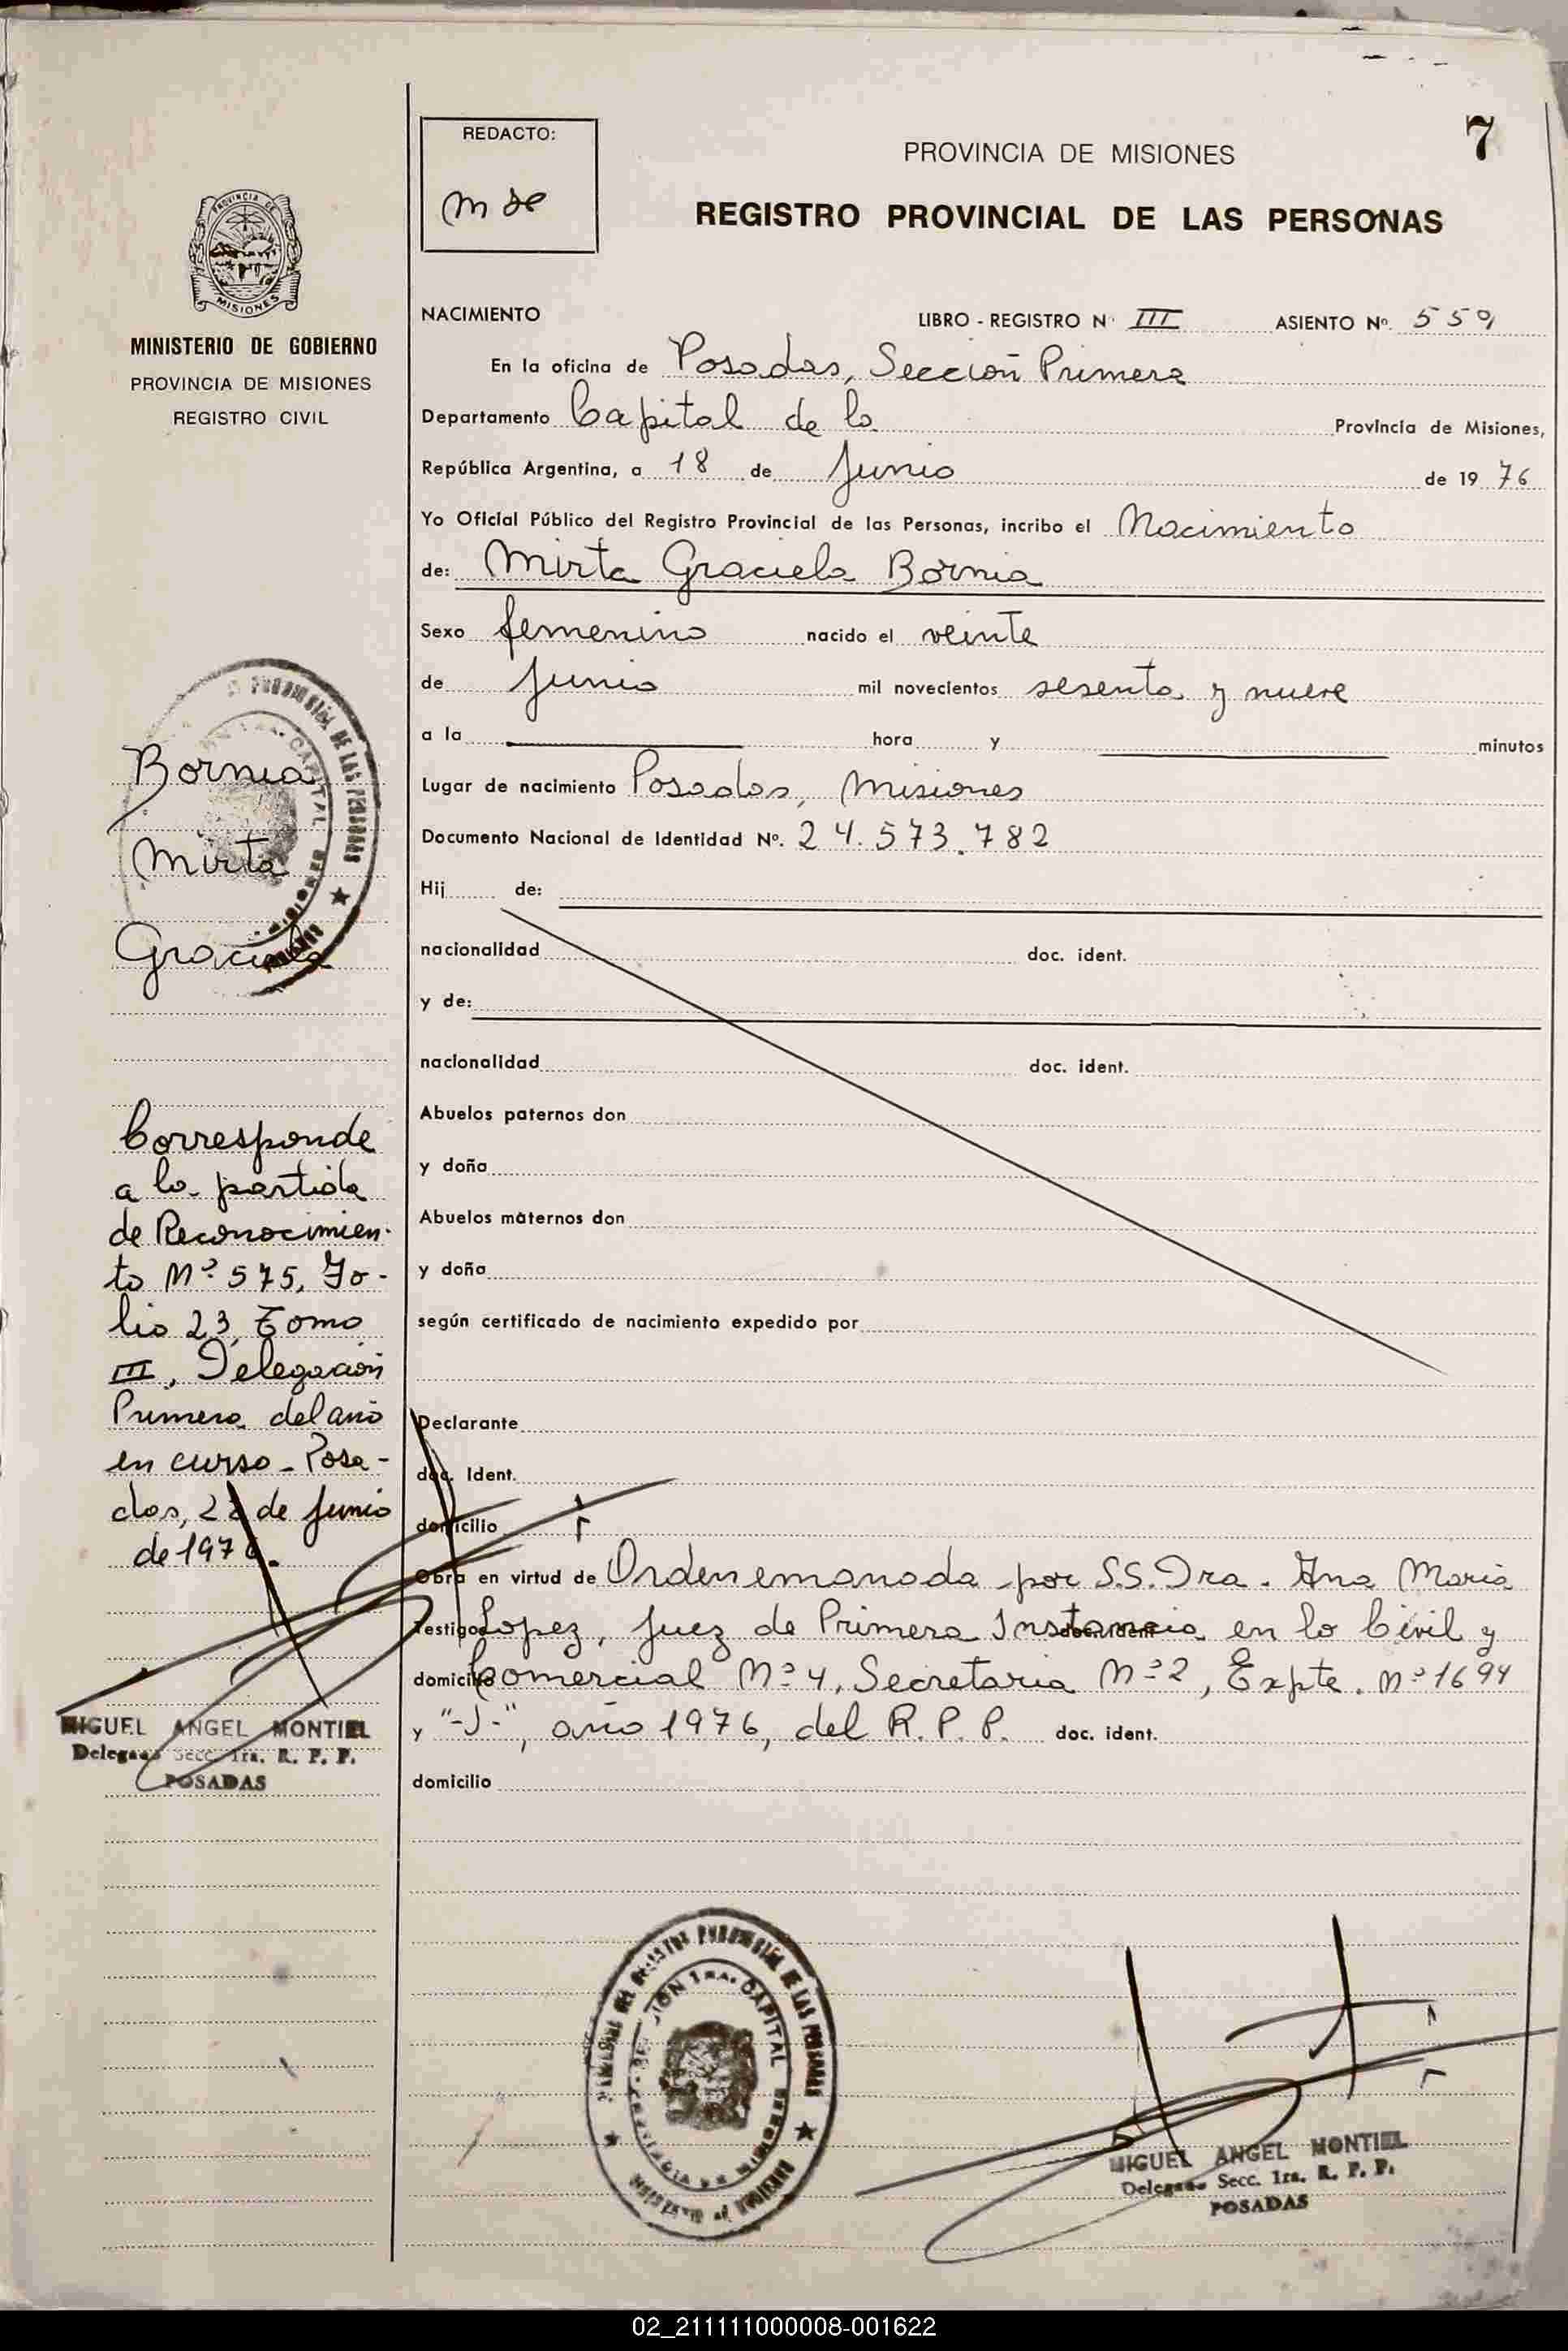 7
REDACTO:
PROVINCIA DE MISIONES
REGISTRO PROVINCIAL DE LAS PERSONAS
PROVINCIA DE
MISIONES
MINISTERIO DE GOBIERNO
PROVINCIA DE MISIONES
REGISTRO CIVIL
NACIMIENTO LIBRO - REGISTRO N· III ASIENTO Nº. 559
En la oficina de Posadas, Sección Primera
Departamento Capital de la Provincia de Misiones,
República Argentina, a 18 de Junio de 1976
Yo Oficial Público del Registro Provincial de las Personas, incribo el Nacimiento
de: Mirta Graciela Bornia
Sexo femenino nacido el veinte
de Junio mil novecientos sesenta y nueve
a la hora y minutos
Lugar de nacimiento Posadas, Misiones
Documento Nacional de Identidad Nº. 24.573.782
Hij de:
nacionalidad doc. ident.
y de:
nacionalidad doc. ident.
Abuelos paternos don
y doña
Abuelos maternos don
y doña
según certificado de nacimiento expedido por
Declarante
doc. Ident.
domicilio
Obra en virtud de Orden emanada por S.S. Dra. Ana Maria
Testigos Lopez, Juez de Primera Instancia en lo Civil y
domicilio Comercial Nº 4, Secretaria Nº 2, Expte. Nº 1694
y "-J-", año 1976, del R. P. P. doc. ident.
domicilio
Bornia
Mirta
Graciela
Corresponde
a la partida
de Reconocimien-
to Nº 575, Fo-
lio 23, Tomo
III, Delegación
Primera del año
en curso - Posa-
das, de Junio
de 1976.
MIGUEL ANGEL MONTIEL
Delegado Secc. 1ra. R. P. P.
POSADAS
CAPITAL
PROVINCIAL DE LAS PERSONAS
MIGUEL ANGEL MONTIEL
Delegado Secc. 1ra. R. P. P.
POSADAS
02_211111000008-001622